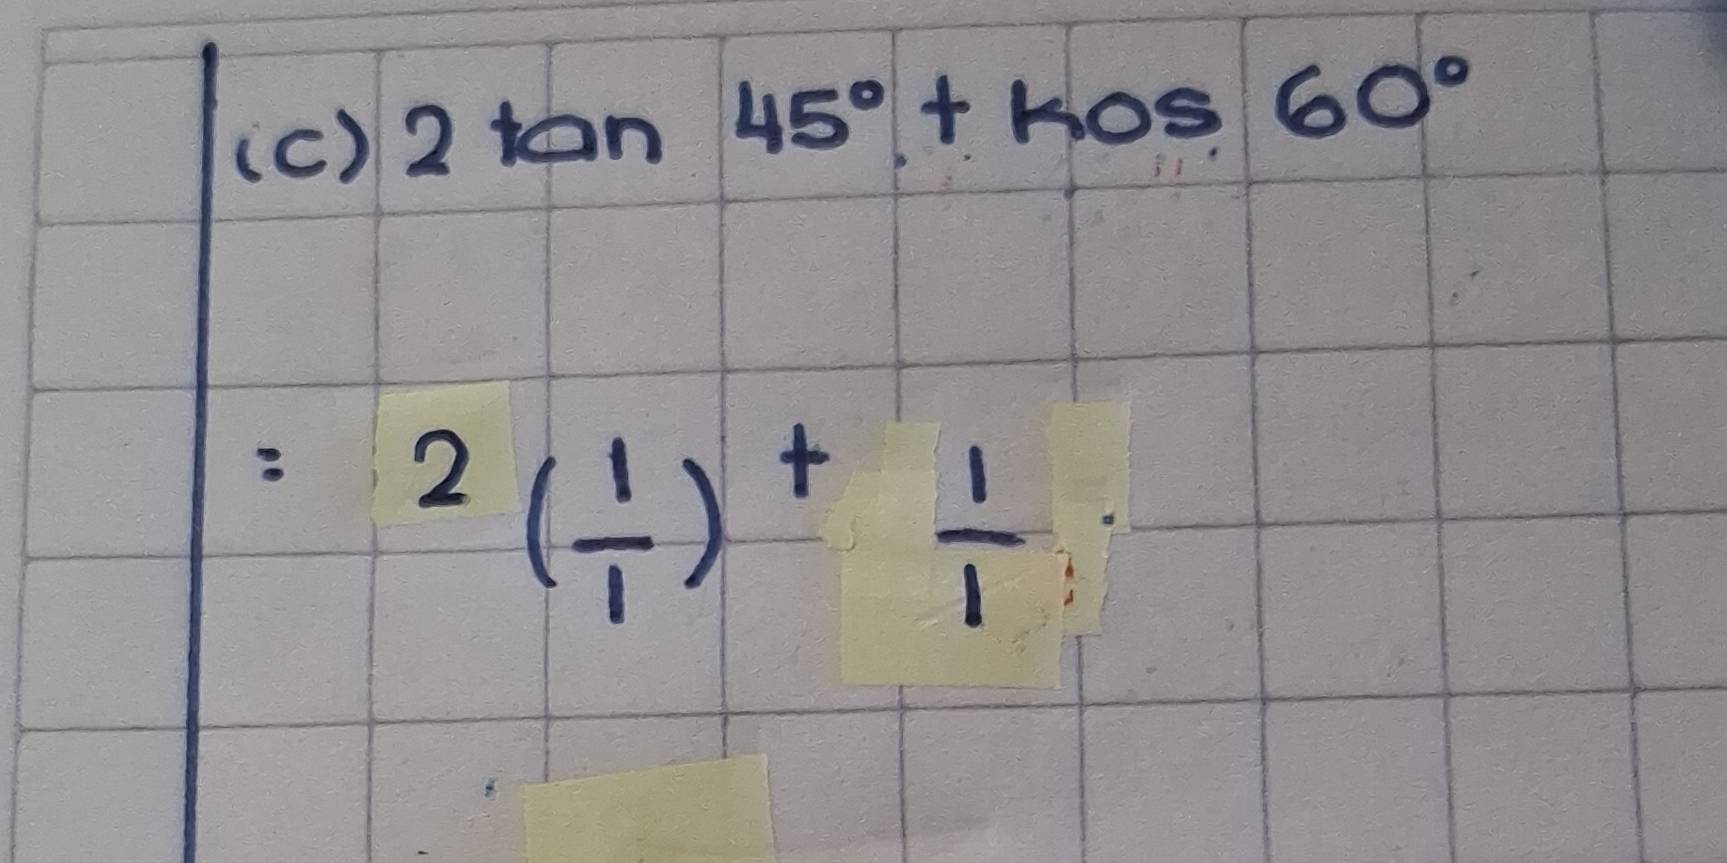 (c) 2 tan 45° + kos 60°
= 2 (1/1) + 1/1